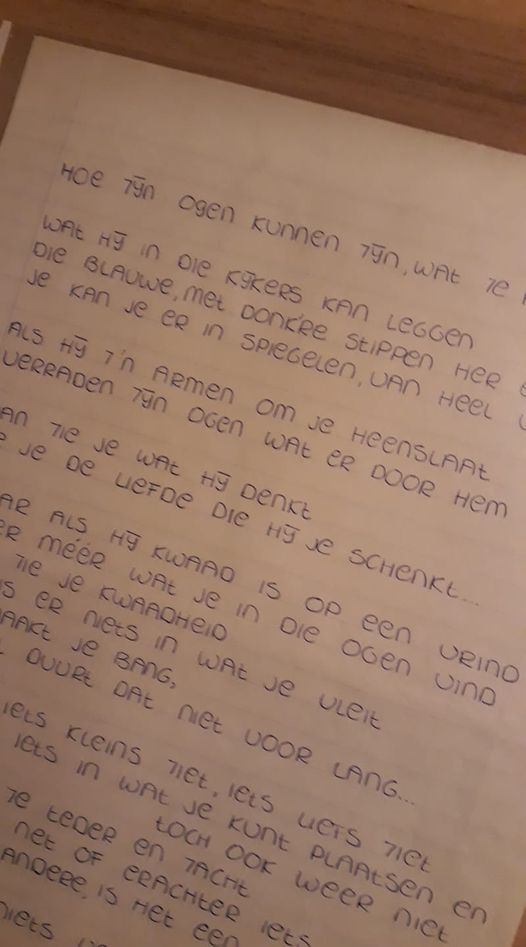 HOE ZIJN OGEN KUNNEN ZIJN, WAT ZE
WAT HIJ IN DIE KIJKERS KAN LEGGEN
DIE BLAUWE, MET DONK'RE STIPPEN HER
JE KAN JE ER IN SPIEGELEN, VAN HEEL
ALS HIJ Z'N ARMEN OM JE HEENSLAAT
VERRADEN ZIJN OGEN WAT ER DOOR HEM
AN ZIE JE WAT HIJ DENKT
E JE DE LIEFDE DIE HIJ JE SCHENKT...
AR ALS HIJ KWAAD IS OP EEN VRIND
ER MÉÉR WAT JE IN DIE OGEN VIND
ZIE JE KWAADHEID
IS ER NIETS IN WAT JE VLEIT
AAKT JE BANG,
L DUURT DAT NIET VOOR LANG...
IETS KLEINS ZIET, IETS LIEFS ZIET
IETS IN WAT JE KUNT PLAATSEN EN
TOCH OOK WEER NIET
ZE TEDER EN ZACHT
NET OF ERACHTER IETS
ANDERE, IS HET EEN
NIETS